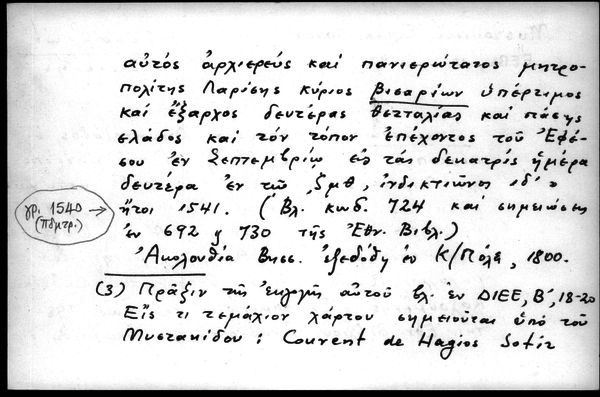 αὐτός ἀρχιερεύς καί πανιερώτατος μητρο-
πολίτης Λαρίσης κύριος βισαρίων ὑπέρτιμος
καί ἔξαρχος δευτέρας θετταλίας καί πάσης
ελάδος καί τόν τόπον ἐπέχοντος τοῦ Ἐφέ-
σου ἐν Σεπτεμβρίῳ εἰς τάς δεκατρίς ἡμέρα
δευτέρα ἐν τῶ ,ζμθ, ἰνδικτιῶνος ιδ' »
γρ. 1540 → ἤτοι 1541. (Βλ. κωδ. 724 καί σημειώσεις
(Πδμτρ.)
ἐν 692 & 730 τῆς Ἐθν. Βιβλ.)
Ἀκολουθία Βησσ. ἐξεδόθη ἐν Κ/Πόλει, 1800.
(3) Πρᾶξιν τῆς ἐκλογῆς αὐτοῦ βλ. ἐν ΔΙΕΕ, Β', 18-20
Εἴς τι τεμάχιον χάρτου σημειοῦται ὑπό τοῦ
Μυστακίδου : Couvent de Hagios Sotir